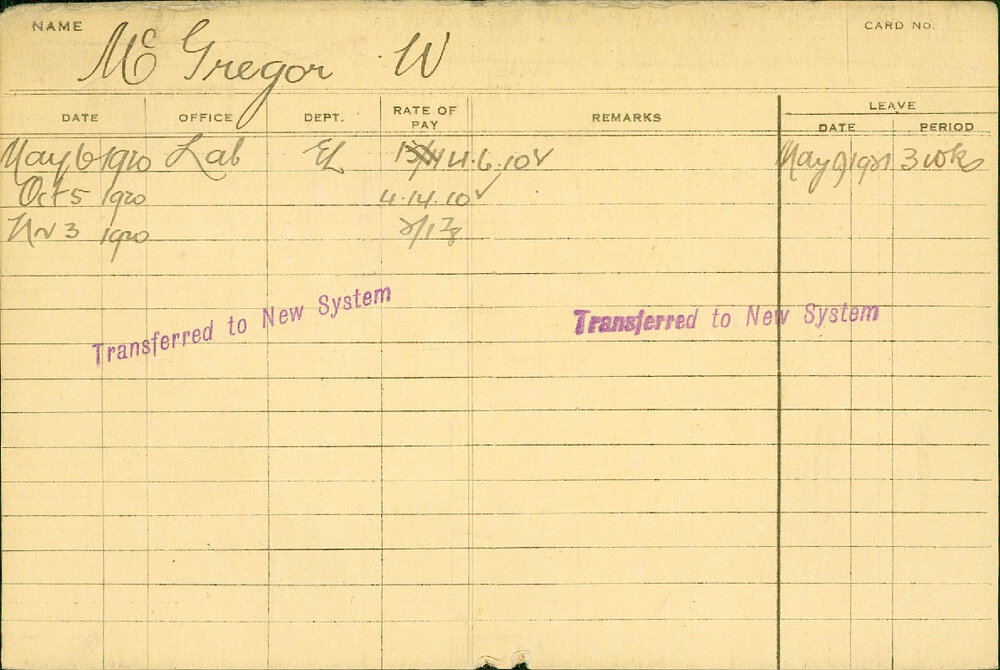 NAME
CARD No.
McGregor W
DATE OFFICE DEPT. RATE OF PAY REMARKS LEAVE
DATE PERIOD
May 6 1920 Lab EL 4.6.10 ✓ May 9 1921 3 wks
Oct 5 1920 4.14.10 ✓
Nv 3 1920
Transferred to New System
Transferred to New System